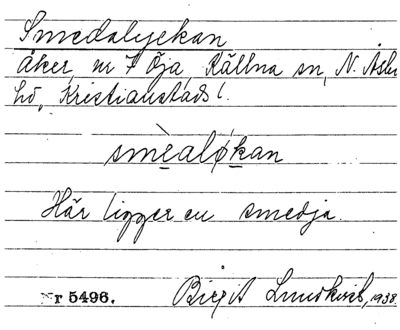 Smedalyckan
åker, nr 7 Öja, Källna sn, N. Åsbo
hd, Kristianstads l.
smèaløkan
Här ligger en smedja.
Nr 5496. Birgit Lundkvist, 1938